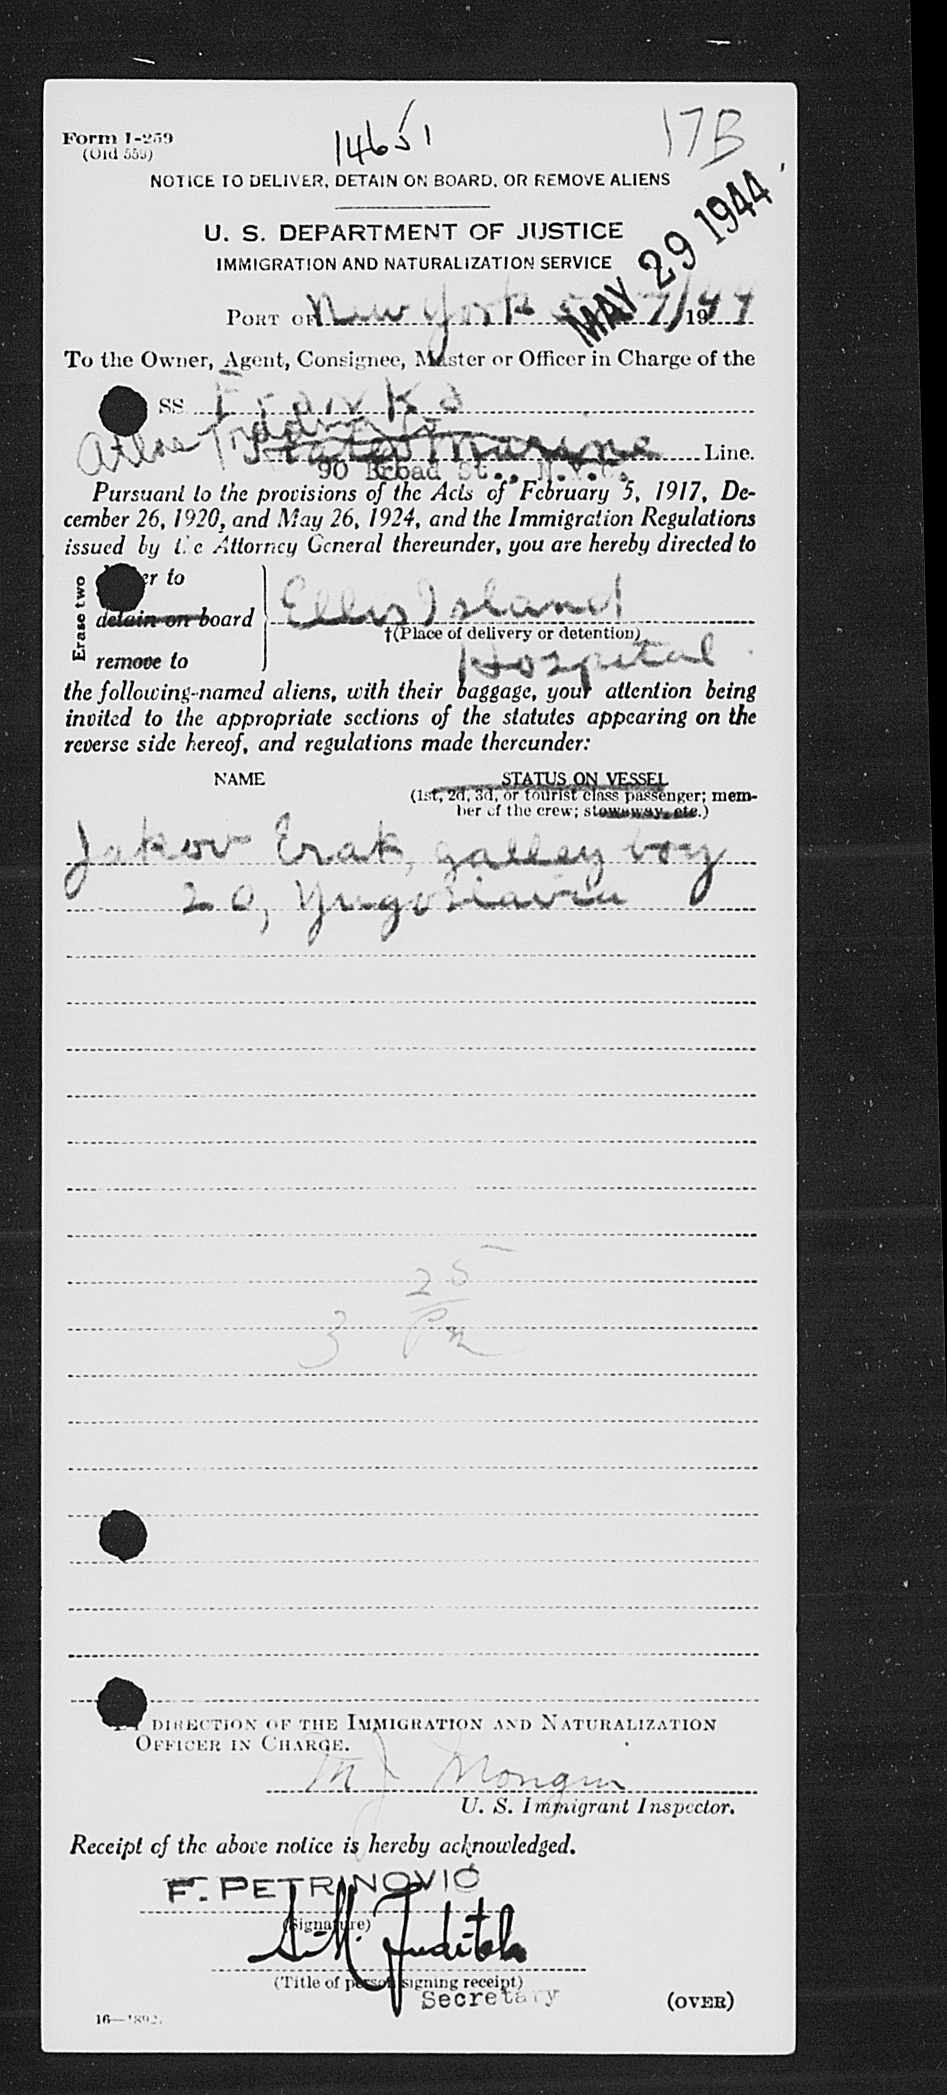 Form I-259
(Old 559)
14651
17B
NOTICE TO DELIVER, DETAIN ON BOARD, OR REMOVE ALIENS
U. S. DEPARTMENT OF JUSTICE
IMMIGRATION AND NATURALIZATION SERVICE
MAY 29 1944
PORT OF New York 7/1944
To the Owner, Agent, Consignee, Master or Officer in Charge of the
SS Franka
Trading Co
States Marine Line.
90 Broad St., N.Y.C.
Pursuant to the provisions of the Acts of February 5, 1917, De-
cember 26, 1920, and May 26, 1924, and the Immigration Regulations
issued by the Attorney General thereunder, you are hereby directed to
Erase two
er to
detain on board
remove to
Ellis Island
†(Place of delivery or detention)
Hospital
the following-named aliens, with their baggage, your attention being
invited to the appropriate sections of the statutes appearing on the
reverse side hereof, and regulations made thereunder:
NAME STATUS ON VESSEL
(1st, 2d, 3d, or tourist class passenger; mem-
ber of the crew; stowaway, etc.)
Jakov Erak, galley boy
20, Yugoslavia
3 25
Pm
DIRECTION OF THE IMMIGRATION AND NATURALIZATION
OFFICER IN CHARGE.
M J
U. S. Immigrant Inspector.
Receipt of the above notice is hereby acknowledged.
F. PETRINOVIĆ
(Signature)
(Title of person signing receipt)
Secretary
(OVER)